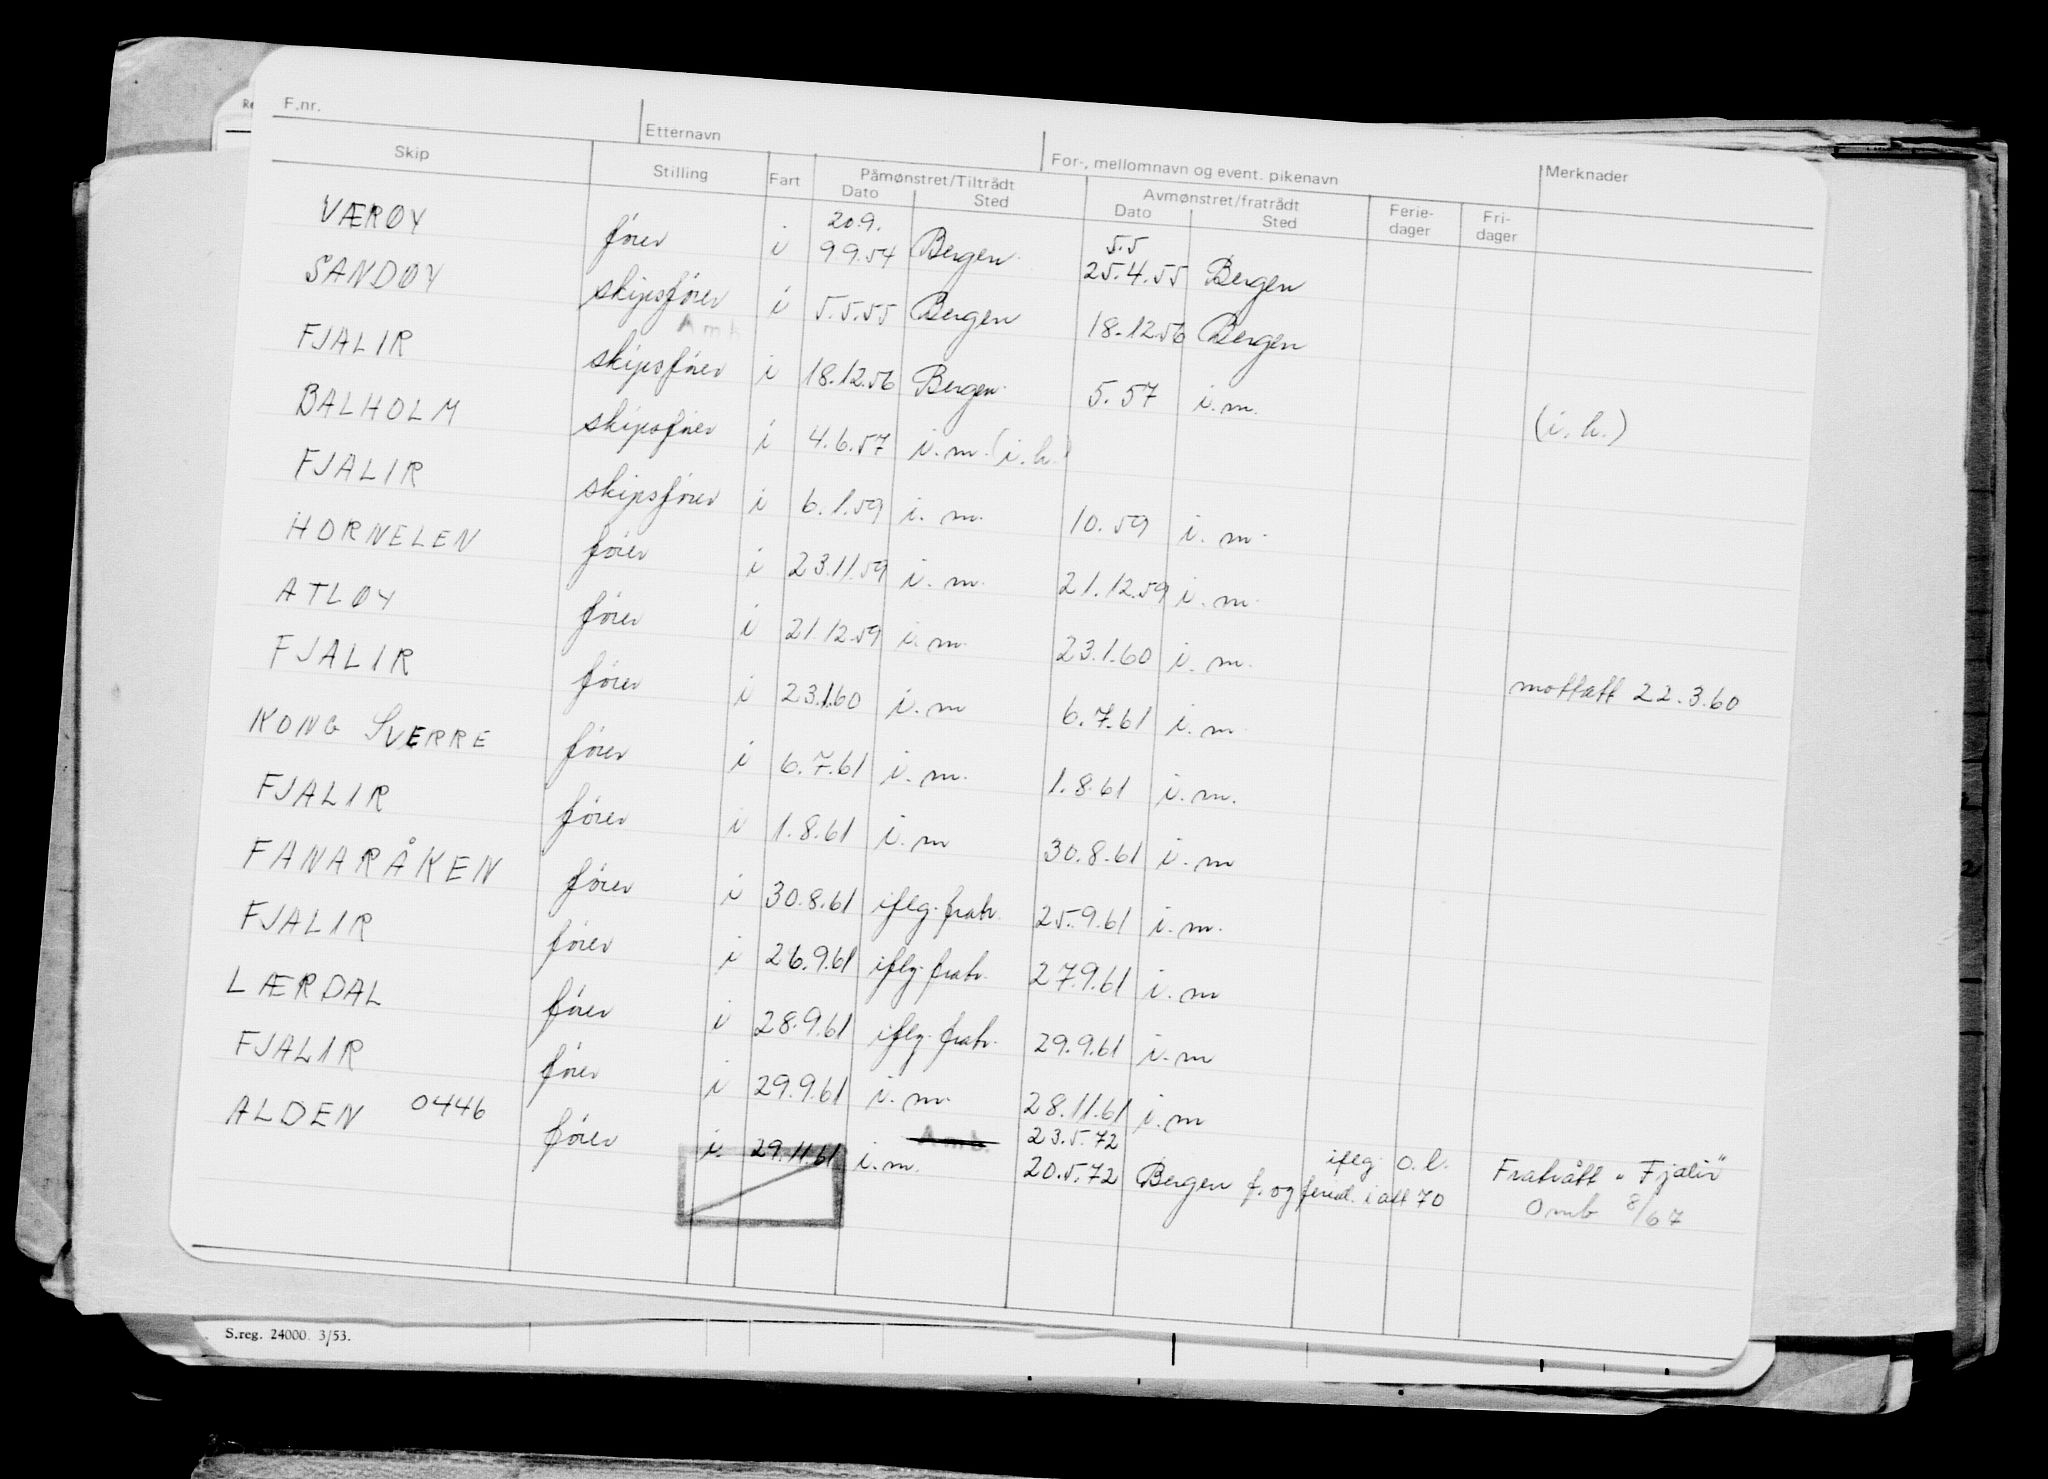 F.nr. Etternavn For-, mellomnavn og event. pikenavn
Skip Stilling Fart Påmønstret/Tiltrådt Avmønstret/fratrådt Ferie-dager Fri-dager Merknader
Dato Sted Dato Sted
20.9. 5.5
VÆRØY fører i 9 9.54 Bergen 25.4.55 Bergen
SANDØY skipsfører i 5.5.55 Bergen 18.12.56 Bergen
FJALIR skipsfører i 18.12.56 Bergen 5.57 i.m. (i.h.)
BALHOLM skipsfører i 4.6.57 i.m. (i.h.)
FJALIR skipsfører i 6.1.59 i.m. 10.59 i.m.
HORNELEN fører i 23.11.59 i.m. 21.12.59 i.m.
ATLØY fører i 21.12.59 i.m. 23.1.60 i.m. mottatt 22.3.60
FJALIR fører i 23.1.60 i.m 6.7.61 i.m.
KONG SVERRE fører i 6.7.61 i.m. 1.8.61 i.m.
FJALIR fører i 1.8.61 i.m 30.8.61 i.m
FANARÅKEN fører i 30.8.61 iflg. fratr. 25.9.61 i.m.
FJALIR fører i 26.9.61 iflg. fratr. 27.9.61 i.m
LÆRDAL fører i 28.9.61 iflg. fratr. 29.9.61 i.m
FJALIR fører i 29.9.61 i.m. 28.11.61 i.m
Amb. 23.5.72 iflg. o.l. Fratrått "Fjalir"
ALDEN 0446 fører i. 29.11.61 i.m. 20.5.72 Bergen f. og feried. i alt 70 Omb 8/67
S.reg. 24000. 3/53.